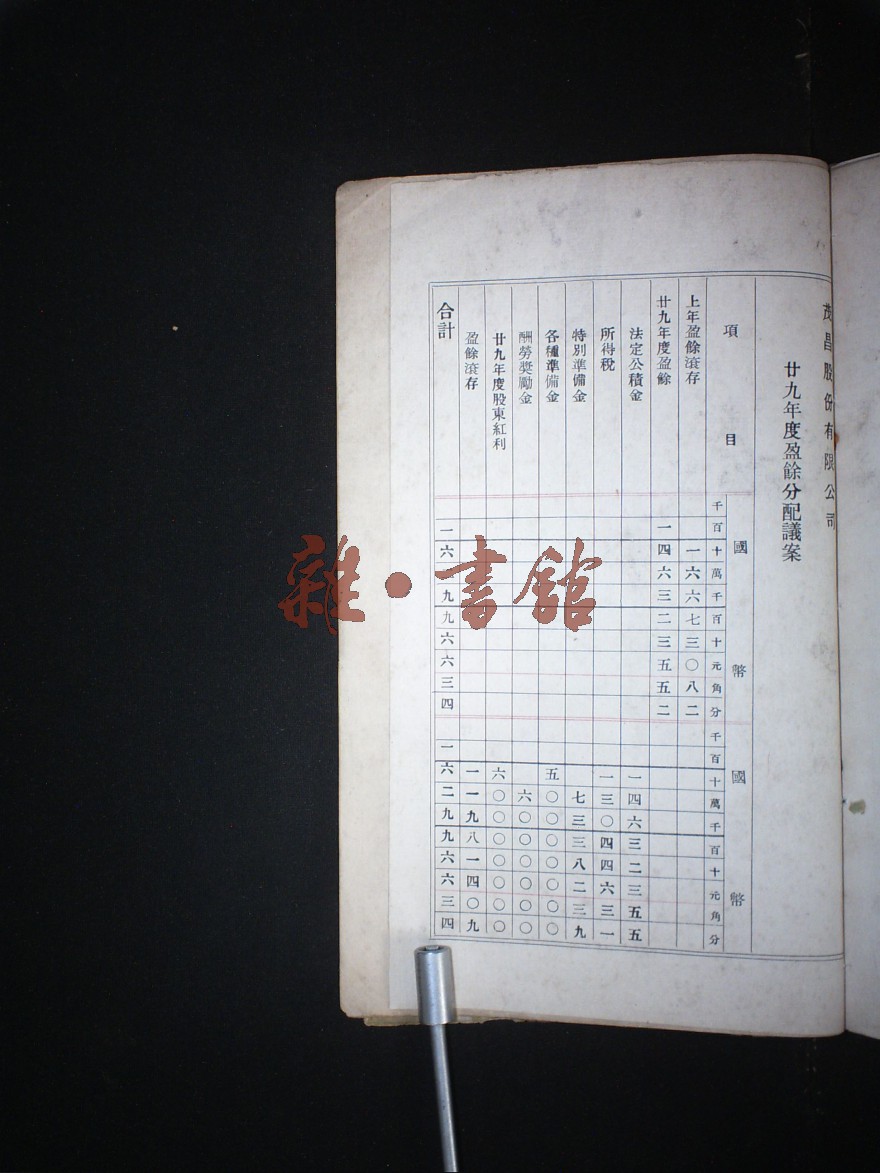 茂昌股份有限公司
廿九年度盈餘分配議案
項目 國幣 國幣
千百十萬千百十元角分 千百十萬千百十元角分
上年盈餘滾存 一六六七三〇八二
廿九年度盈餘 一四六三二三五五二
法定公積金 一四六三二三五五
所得稅 一三〇四四六三一
特別準備金 七三三八二三九
各種準備金 五〇〇〇〇〇〇〇
酬勞獎勵金 六〇〇〇〇〇〇
廿九年度股東紅利 六〇〇〇〇〇〇〇
盈餘滾存 一一九八一四〇九
合計 一六九九六六三四 一六二九九六六三四
雜·書館